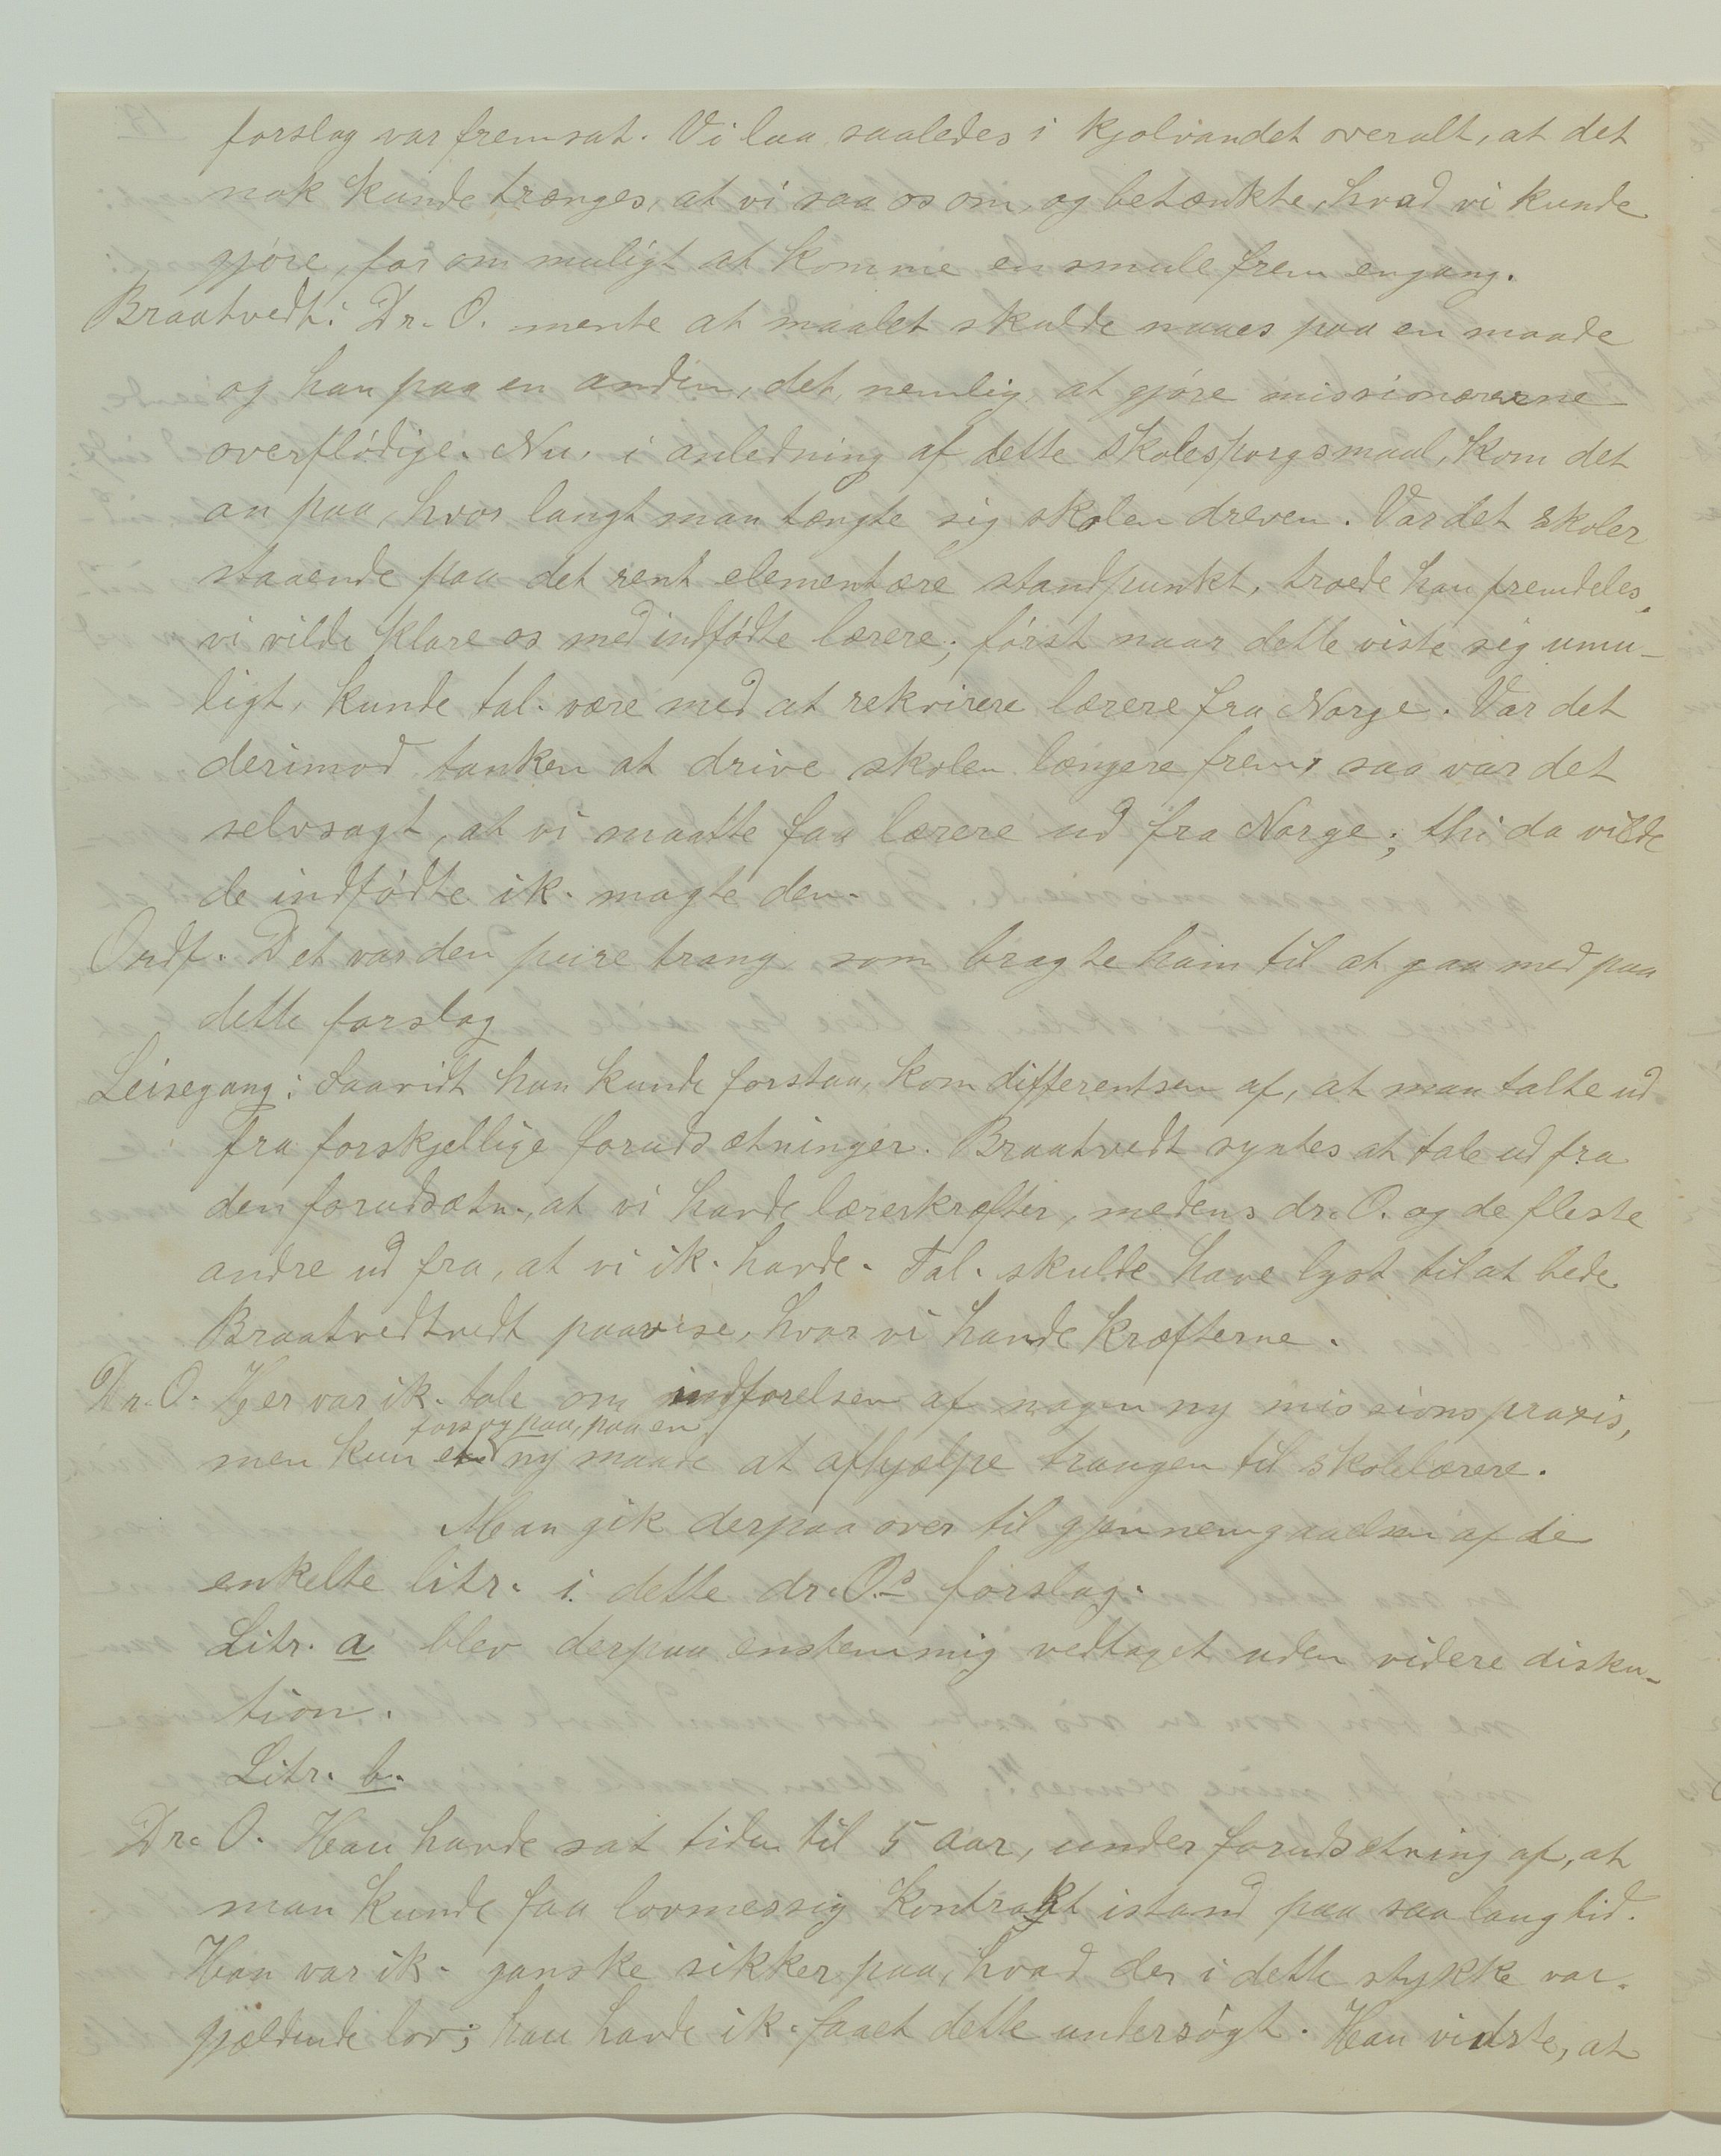 forslag var fremsat. Vi laa saaledes i kjølvandet overalt, at det
nok kunde trænges, at vi saa os om, og betænkte, hvad vi kunde
gjøre, for om muligt at komme en smule frem engang.
Braatvedt: Dr. O. mente at maalet skulde naaes paa en maade
og han paa en anden, det, nemlig, at gjøre missionærerne
overflødige. Nu, i anledning af dette skolespørgsmaal, kom det
an paa, hvor langt man tængte sig skolen dreven. Var det skoler
staaende paa det rent elementære standpunkt, troede han fremdeles,
vi vilde klare os med indfødte lærere; først naar dette viste sig umu-
ligt, kunde tal. være med at rekvirere lærere fra Norge. Var det
derimod tanken at drive skolen længere frem, saa var det
selvsagt, at vi maatte faa lærere ud fra Norge; thi da vilde
de indfødte ik. magte den.
Ordf. Det var den pure trang, som bragte ham til at gaa med paa
dette forslag
Leisegang: Saavidt han kunde forstaa, kom differentsen af, at man talte ud
fra forskjellige forudsætninger. Braatvedt syntes at tale ud fra
den forudsætn., at vi havde lærerkræfter, medens dr. O. og de fleste
andre ud fra, at vi ik. havde. Tal. skulde have lyst til at bede
Braatvedtvedt paavise, hvor vi havde kræfterne.
Dr. O. Her var ik. tale om indførelsen af nogen ny missionspraxis,
forsøg paa, paa en
men kun et ny maade at afhjælpe trangen til skolelærere.
Man gik derpaa over til gjennemgaaelsen af de
enkelte litr. i dette dr. O.s forslag.
Litr. a blev derpaa enstemmig vedtaget uden videre disku-
tion.
Litr. b.
Dr. O. Han havde sat tiden til 5 aar, under forudsetning af, at
man kunde faa lovmessig kontrakt istand paa saa lang tid.
Han var ik. ganske sikker paa, hvad der i dette stykke var
gjældende lov; han havde ik. faaet dette undersøgt. Han vidste, at